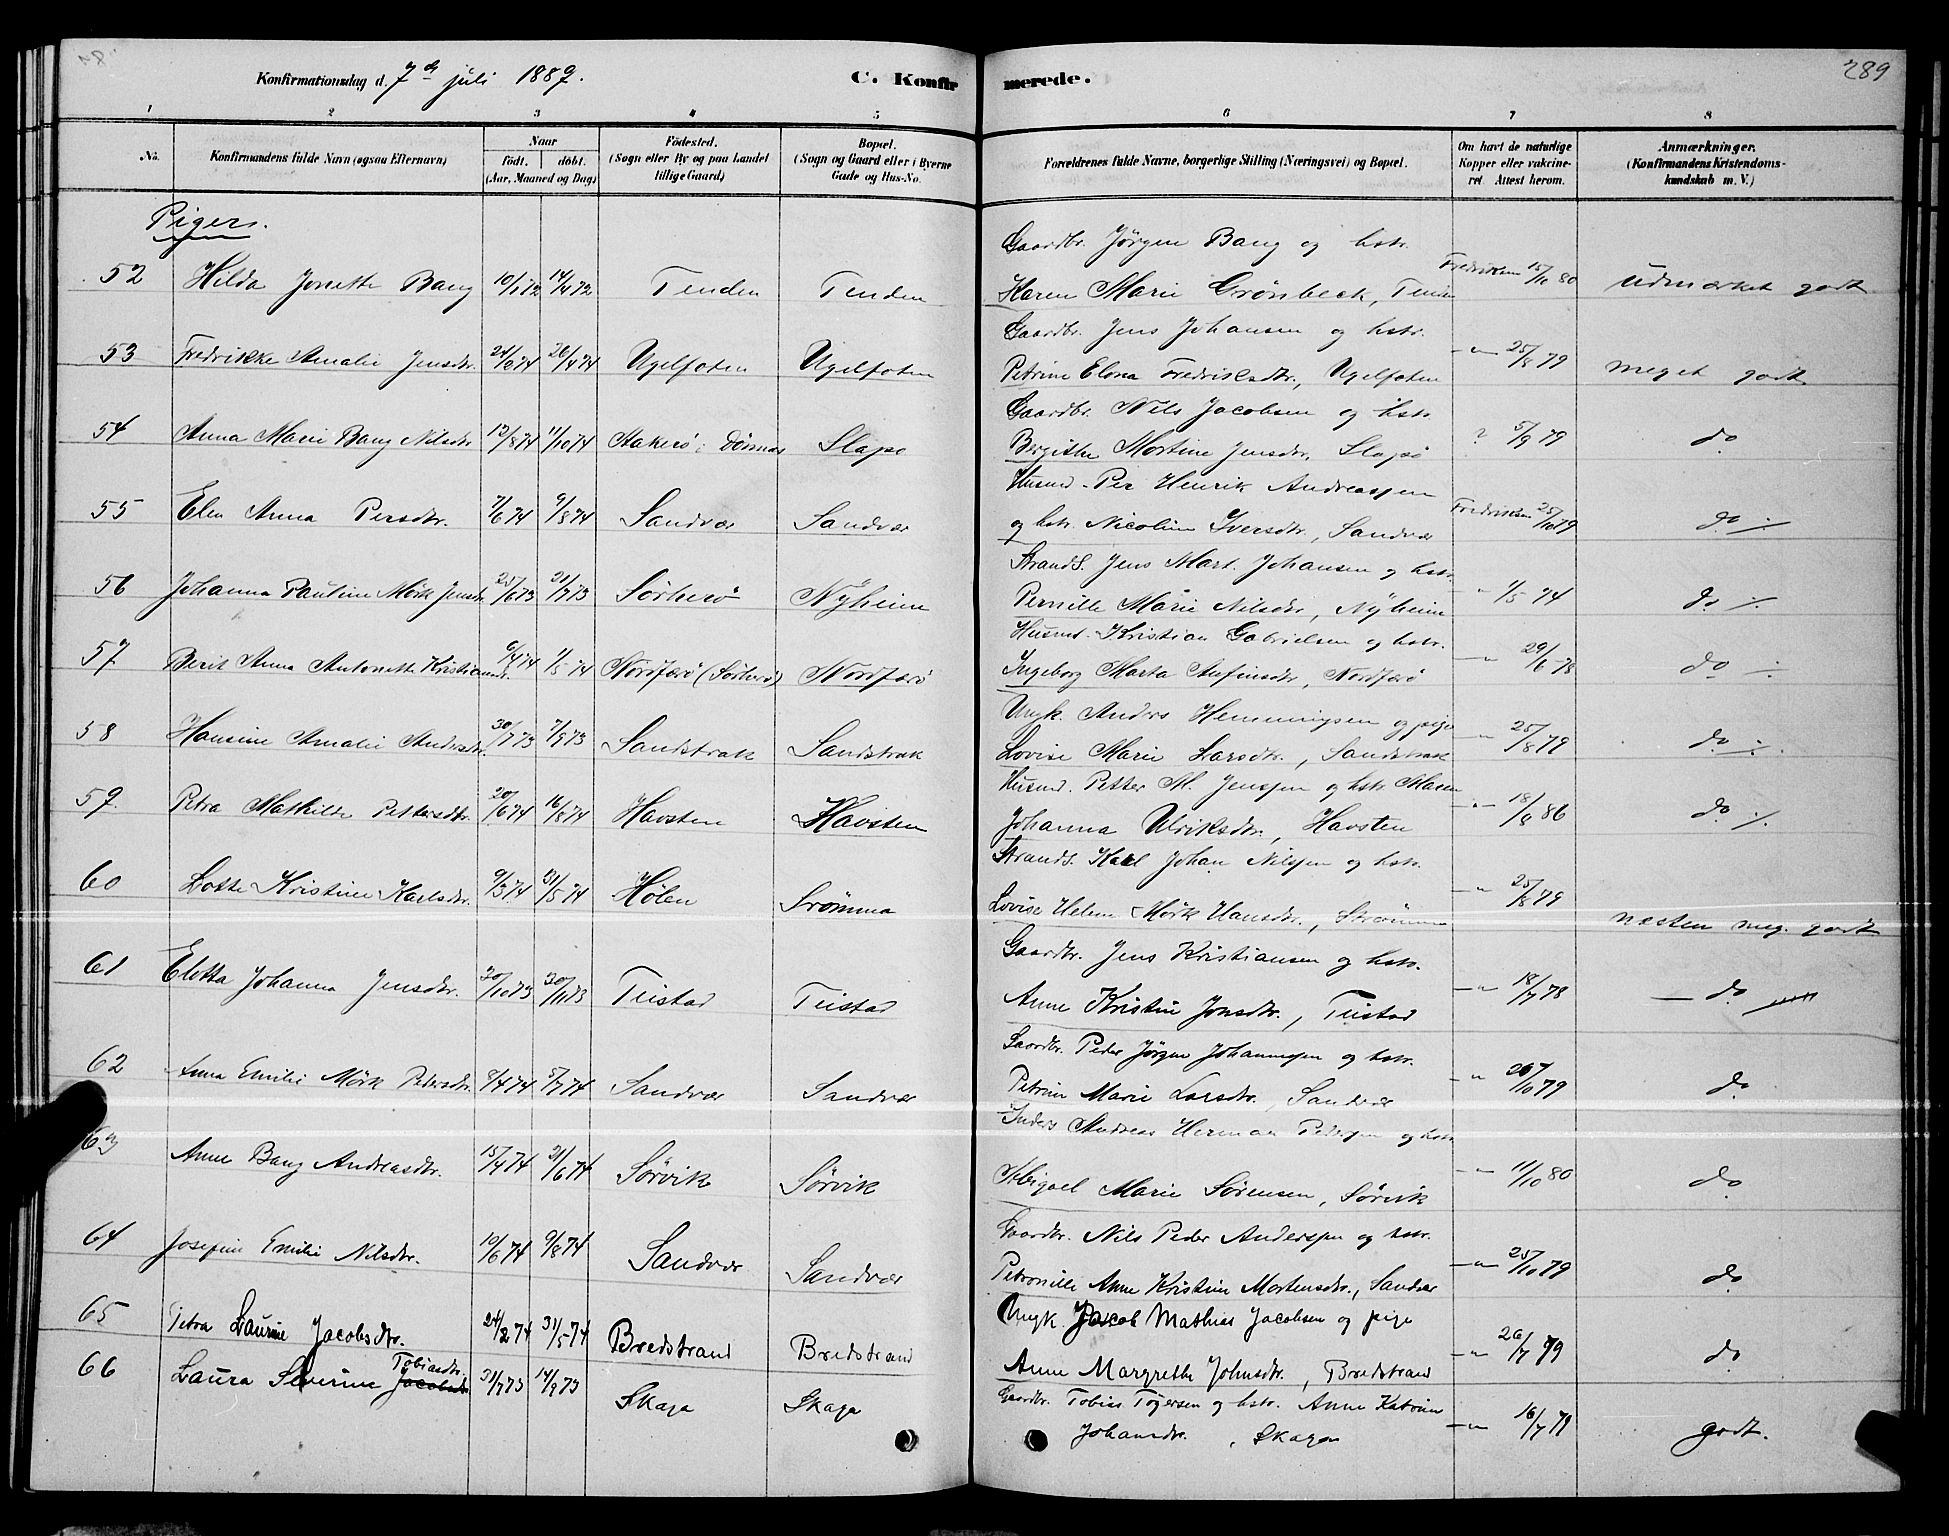 Konfirmationsdag d. 7de juli 1889.
C. Konfirmerede.
289
1 2 3 4 5 6 7 8
No.
Konfirmandens fulde Navn (ogsaa Efternavn)
Naar
födt. döbt.
(Aar, Maaned og Dag)
Födested.
(Sogn eller By og paa Landet
tillige Gaard)
Bopæl.
(Sogn og Gaard eller i Byerne
Gade og Hus-No.
Forældrenes fulde Navne, borgerlige Stilling (Næringsvei) og Bopæl.
Om havt de naturlige
Kopper eller vakcine-
ret. Attest herom.
Anmærkninger.
(Konfirmandens Kristendoms-
kundskab m. V.)
Piger.
Gaardbr. Jörgen Bang og hstr.
52 Hilda Jonette Bang 10/1 72 14/4 72 Tenden Tenden Karen Marie Grönbeck, Tenden Fredriksen 15/10 80 Udmærket godt
Gaardbr. Jens Johansen og hstr.
53 Fredrikke Amalie Jensdtr. 24/2 74 26/4 74 Ugelfoten Ugelfoten Petrine Elona Fredriksdtr., Ugelfoten -"- 25/8 79 meget godt
Gaardbr. Nils Jacobsen og hstr
54 Anna Marie Bang Nilsdtr 12/8 74 11/10 74 Stakerö i Dönnes Slapö Bergithe Mortine Jensdtr. Slapö ? 5/9 79 do
Husmd. Per Henrik Andreassen
55 Elen Anna Persdtr. 7/6 74 9/8 74 Sandvær Sandvær og hstr. Nicoline Iversdtr., Sandvær Fredriksen 25/10 79 do ./.
Strands. Jens Mart. Johansen og hstr.
56 Johanna Pauline Mörk Jensdtr 25/6 73 21/7 73 Sörherö Nyheim Pernille Marie Nilsdtr, Nyheim " 1/5 74 do ./.
Husmd. Kristian Gabrielsen og hstr.
57 Berit Anna Antonette Kristiansdtr. 6/4 74 1/5 74 Nordfærö (Sörherö) Nordfærö Ingeborg Marta Anfinsdtr, Nordfærö -"- 29/6 78 do ./.
Ungk. Anders Hemmingsen og pige
58 Hansine Amalie Andersdtr. 30/7 73 7/9 73 Sandstrak Sandstrak Lovise Marie Larsdtr., Sandstrak -"- 25/8 79 do ./.
Husmd. Petter M. Jenssen og hstr Maren
59. Petra Mathilde Pettersdtr. 20/6 74 16/8 74 Havsten Havsten Johanna Ulriksdtr., Havsten -"- 18/8 86 do ./.
Strands. Karl Johan Nilssen og hstr.
60 Lotte Kristine Karlsdtr. 9/3 74 31/5 74 Hölen Srömma Lovise Helene Mörk Hansdtr., Strömma -"- 25/8 79 næsten meg. godt
Gaardbr. Jens Kristiansen og hstr.
61 Elotta Johanna Jensdtr. 20/10 73 30/11 73 Teistad Teistad Anne Kristine Jonsdtr., Teistad -"- 18/7 78 — do
Gaardbr. Peder Jörgen Johannessen og hstr.
62 Anna Emilie Mörk Pedersdtr. 8/4 74 5/7 74 Sandvær Sandvær Petrine Marie Larsdtr., Sandvær -"- 25/10 79 do
Inders Andreas Herman Pedersen og hstr
63 Anne Bang Andreasdtr. 15/4 74 21/6 74 Sörvik Sörvik Abigael Marie Sörensen, Sörvik -"- 11/10 80 do
Gaardbr. Nils Peder Anderssen og hstr.
64 Josefine Emilie Nilsdtr. 10/6 74 9/8 74 Sandvær Sandvær Petronille Anne Kristine Mortensdtr., Sandvær -"- 25/10 79 do
Ungk. Jacob Mathias Jacobsen og pige
65 Petra Laurine Jacobsdtr. 24/2 74 31/5 74 Bredstrand Bredstrand Anne Margrethe Johnsdtr., Bredstrand -"- 26/7 79 do
Tobiasdtr.
66 Laura Severine Jacobsdtr 31/7 73 14/9 73 Skaga Skaga Gaardbr. Tobias Tögersen og hstr. Anne Katrine -"- 16/7 79 godt.
Johansdtr. , Skagen